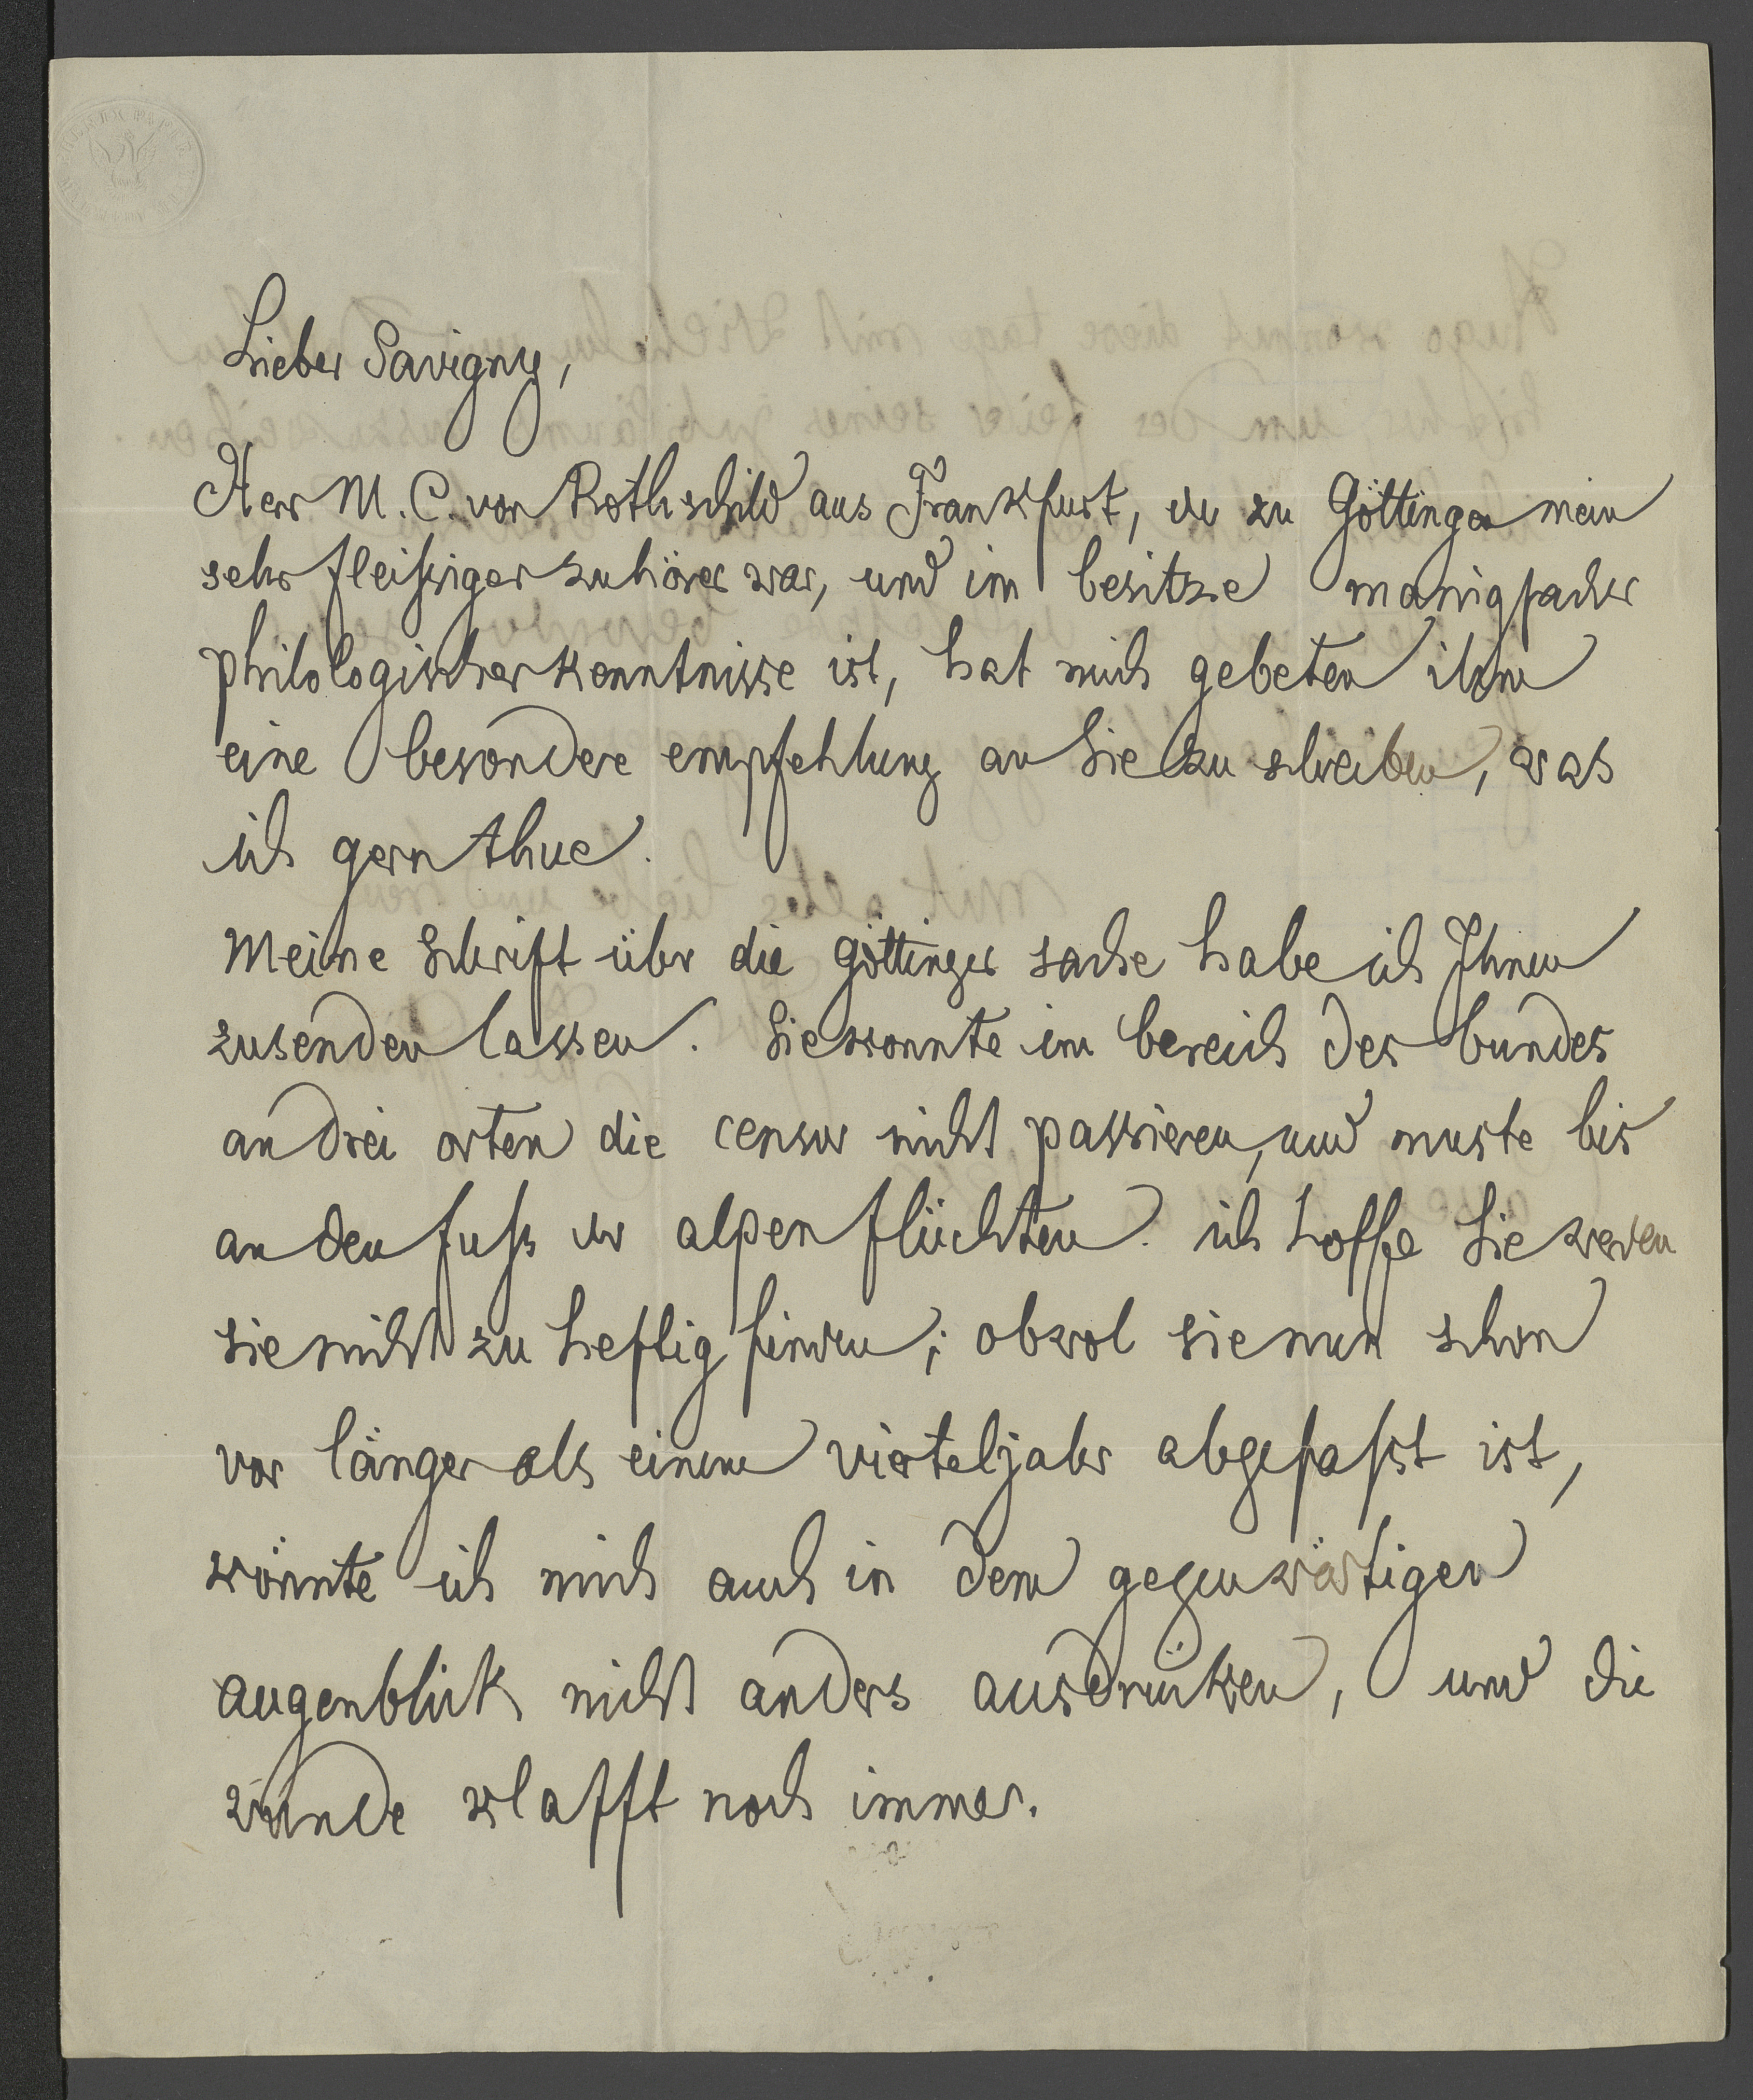 Lieber Savigny,
Herr M. C. von Rothschild aus Frankfurt, der zu Göttingen mein
sehr fleißiger zuhörer war, und im besitze manigfacher
philologischer kenntnisse ist, hat mich gebeten ihm
eine besondere empfehlung an Sie zu schreiben, was
ich gern thue.
Meine Schrift über die göttinger sache habe ich Ihnen
zusenden lassen. Sie konnte im bereich des bundes
an drei orten die censur nicht passieren, und muste bis
an den fuß der alpen flüchten. ich hoffe Sie werden
sie nicht zu heftig finden; obwol sie nun schon
vor länger als einem vierteljahr abgefaßt ist,
könnte ich mich auch in dem gegenwärtigen
augenblick nicht anders ausdrücken, und die
wunde klafft noch immer.